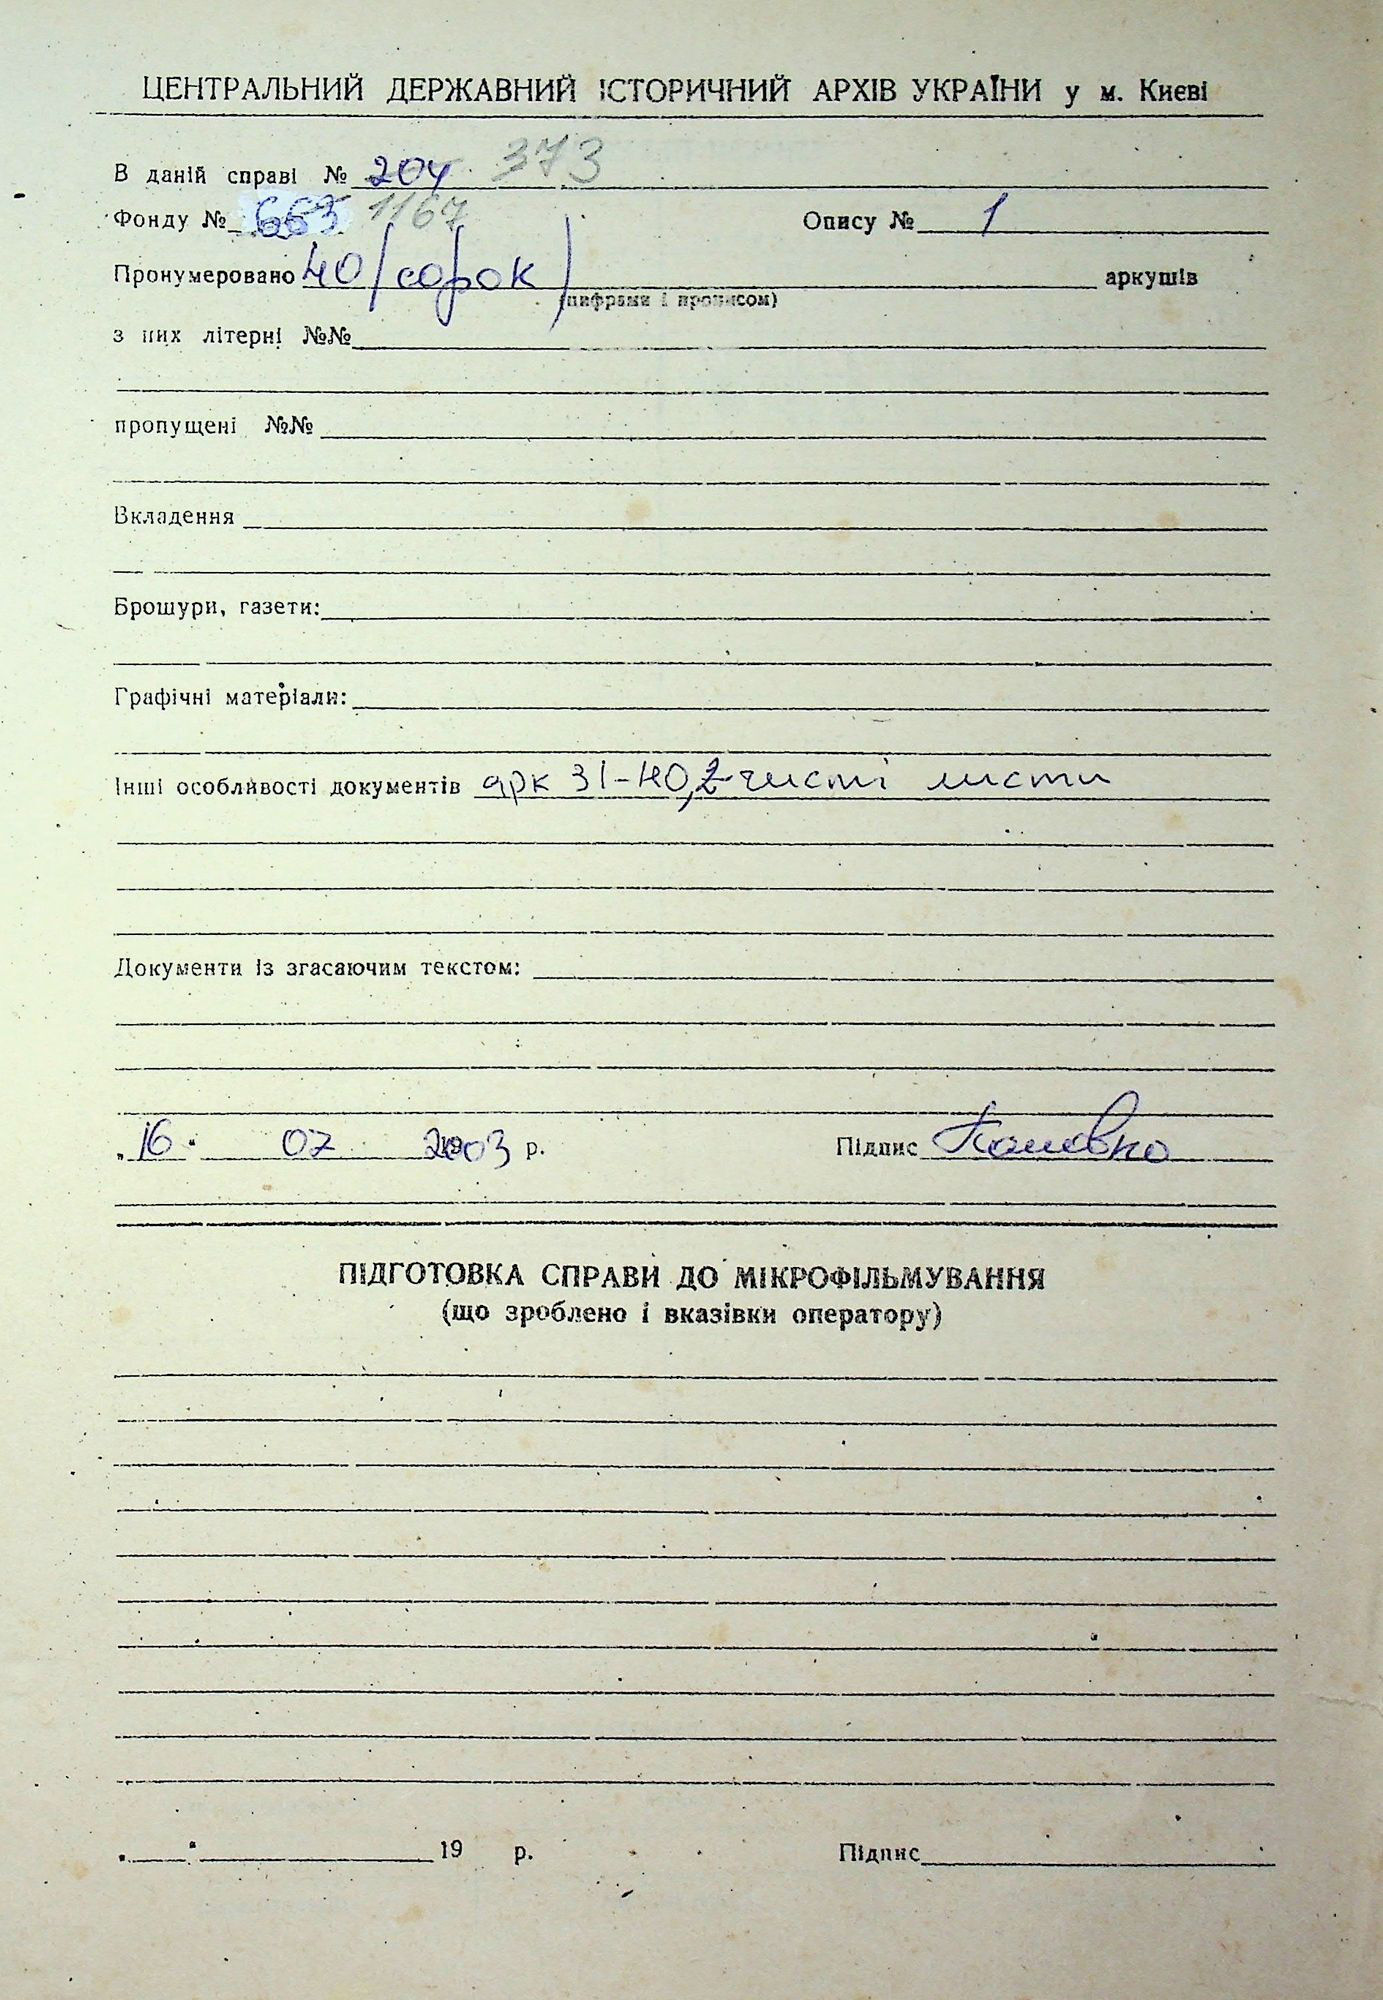 ЦЕНТРАЛЬНИЙ ДЕРЖАВНИЙ ІСТОРИЧНИЙ АРХІВ УКРАЇНИ у м. Києві
В даній справі № 204 373
Фонду № 663 1167 Опису № 1
Пронумеровано 40 (сорок) аркушів
(цифрами і прописом)
з них літерні №№
пропущені №№
Вкладення
Брошури, газети:
Графічні матеріали:
Інші особливості документів арк 31-40, 2 чисті листи
Документи із згасаючим текстом:
„16" 07 2003 р. Підпис
ПІДГОТОВКА СПРАВИ ДО МІКРОФІЛЬМУВАННЯ
(що зроблено і вказівки оператору)
„ " 19 р. Підпис